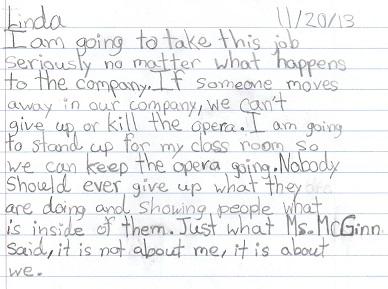 Linda 11/20/13
I am going to take this job
seriously no matter what happens
to the company. If someone moves
away in our company, we can't
give up or kill the opera. I am going
to stand up for my class room so
we can keep the opera going. Nobody
should ever give up what they
are doing and showing people what
is inside of them. Just what Ms. McGinn
said, it is not about me, it is about
we.